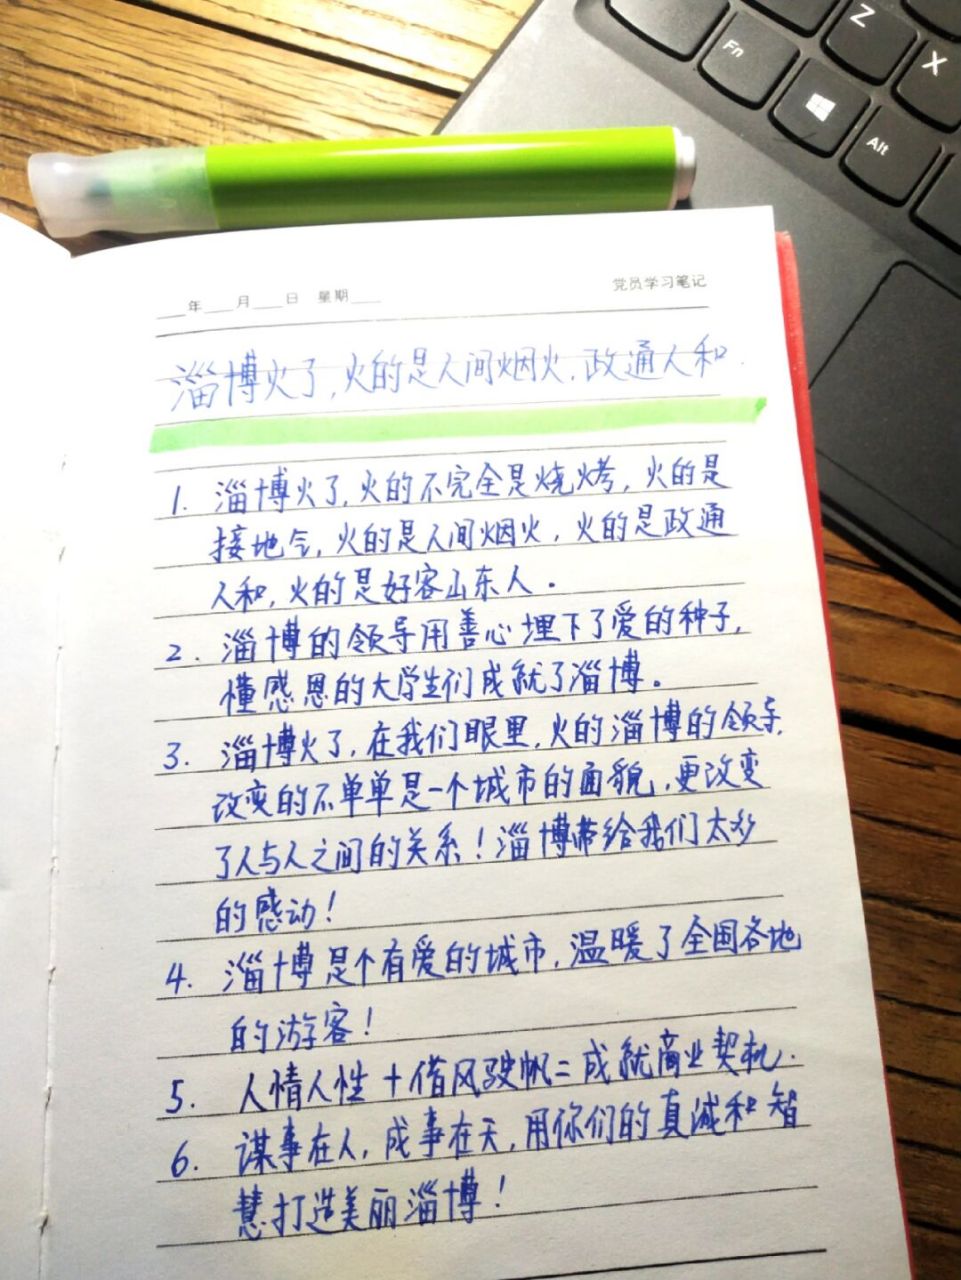 Z
X
Fn
Alt
___年___月___日 星期___
党员学习笔记
淄博火了,火的是人间烟火,政通人和.
1. 淄博火了,火的不完全是烧烤,火的是
接地气,火的是人间烟火,火的是政通
人和,火的是好客山东人.
2. 淄博的领导用善心埋下了爱的种子,
懂感恩的大学生们成就了淄博.
3. 淄博火了,在我们眼里,火的淄博的领导,
改变的不单单是一个城市的面貌,更改变
了人与人之间的关系!淄博带给我们太多
的感动!
4. 淄博是个有爱的城市,温暖了全国各地
的游客!
5. 人情人性+借风驶帆=成就商业契机.
6. 谋事在人,成事在天,用你们的真诚和智
慧打造美丽淄博!